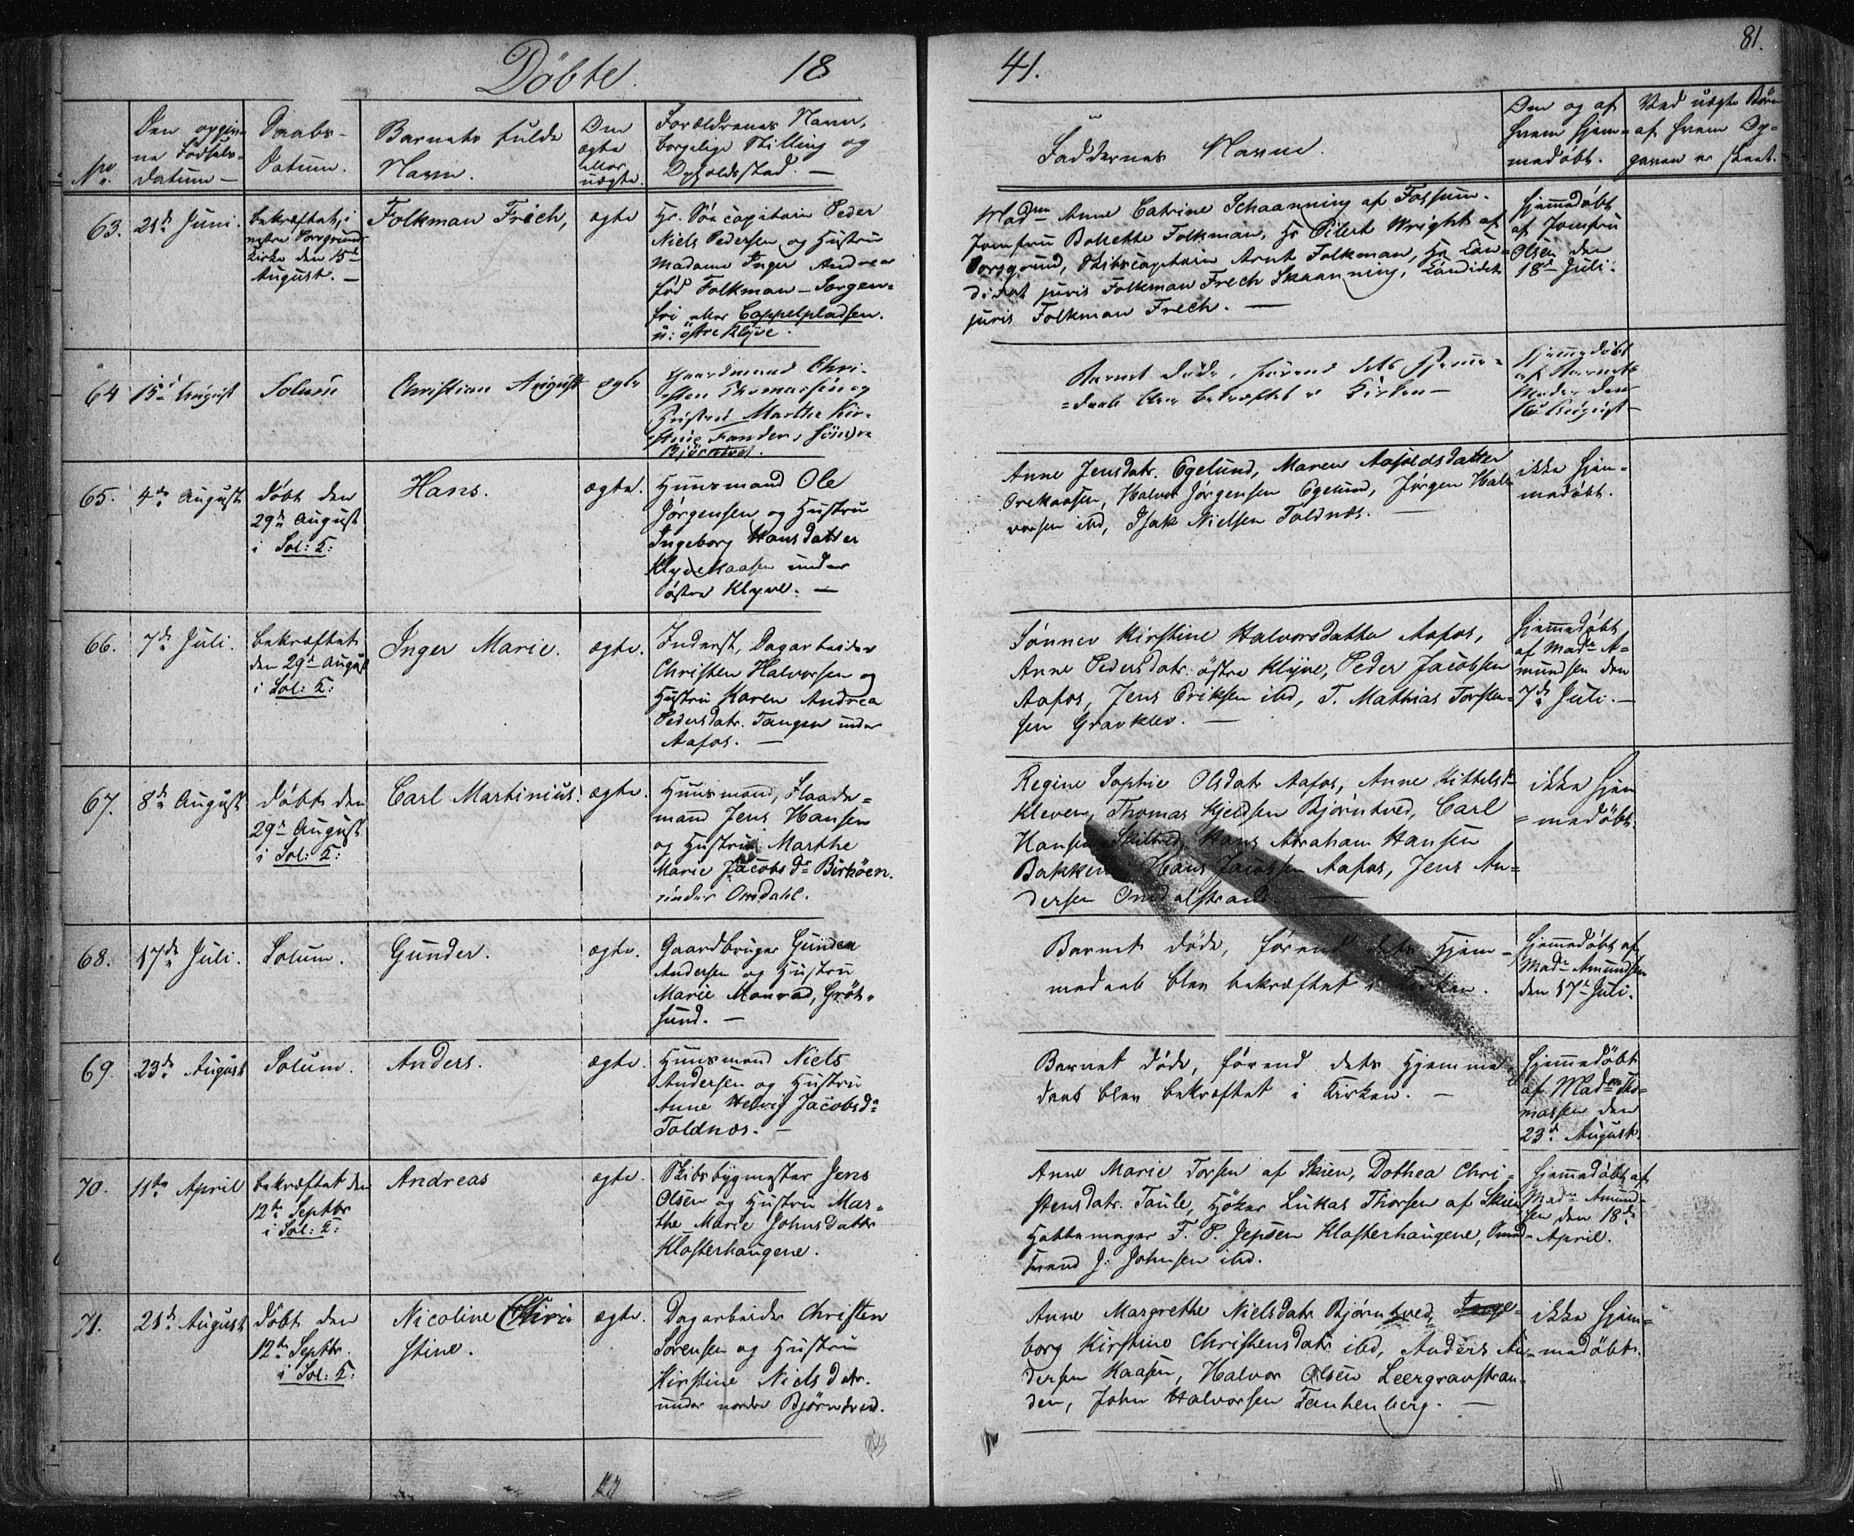 81.
Döbte. 18 41.
No.
Den opgiv-
ne Födsels-
datum —
Daabs-
Datum.
Barnets fulde
Navn.
Om
ægte
eller
uægte.
Forældrenes Navn,
borgelige Stilling og
Opholdssted. —
Faddernes Navne.
Om og af
hvem hjem-
medöbt.
Ved uægte Börn
af hvem Op-
gaven er skeet.
63.
21de Juni.
bekræftet i
Porsgrunds
Kirke den 15de
August. —
Folkman Frech,
ægte
Hr. Söecapitain Peder
Niels Pedersen og Hustru
Madame Inger Andrea
föd Folkman — Sorgen-
fri eller Cappelpladsen.
u: östre Klyve.
Madm Anne Catrine Schaanning af Fossum.
Jomfru Bolette Folkman, Hr Eilert Wright af
Porsgrund, Skibscapitain Arnt Folkman, Hr Can-
didat juris Folkman Frech Skaanning, Candidat
juris Folkman Frech. —
Hjemmedöbt
af Jomfru
Olsen den
18de Juli.
64
15de August
Solum
Christian August
ægte
Gaardmand Chri-
sten Thomassen og
Hustru Marthe Kir-
stine Fander, Söndre
Björntvet.
Barnet döde, förend dets Hjemme-
=daab blev bekræftet i Kirken —
Hjemmedöbt
af Barnets
Moder den
16 August —
65.
4de August
döbt den
29de August
i Sol: K:
Hans.
ægte.
Huusmand Ole
Jörgensen og Hustru
Ingeborg Hansdatter
Klyvekaasen under
östre Klyve. —
Anne Jensdatr. Egelund, Maren
Halvor Jörgensen Egelund, Jörgen Hal-
vorsen ibd, Isak Nielsen Toldnæs. —
ikke hjem-
medöbt.
66.
7de Juli.
bekræftet
den 29de August
i Sol: K:
Inger Marie.
ægte.
Inderst, Dagarbeider
Christen Halvorsen og
Hustru Karen Andrea
Pedersdatr. Tangen under
Aafos. —
Kirstine Halvorsdatter Aafos,
Anne Pedersdatr. östre Klyve, Peder Jacobsen
Aafos, Jens Eriksen ibd, T. Mathias Torsten-
sen Gravklev. —
Hjemmedöbt
af Madm A-
mundsen den
7de Juli. —
67.
8de August
döbt den
29de August
i Sol: K:
Carl Martinius.
ægte.
Huusmand, Flaade-
mand Jens Hansen
og Hustru Marthe
Marie Jacobsdr Birköen.
under Omdahl.
Regine Sophie Olsdatr Aafos, Anne Kittelsdr
Kleven, Thomas Kjeldsen Björntved, Carl
Hansen Skilbred, Hans Abraham Hansen
Bakken, Hans Jacobsen Aafos, Jens An-
dersen Omdalstrand. —
ikke hjem
=medöbt.
68.
17de Juli.
Solum.
Gunder.
ægte.
Gaardbruger Gunder
Andersen og Hustru
Marie Monrad, Gröt-
sund. —
Barnet döde, förend dets Hjem-
medaab blev bekræftet i Kirken.
Hjemmedöbt af
Madm Amundsen
den 17de Juli.
69.
23de August
Solum.
Anders.
ægte.
Huusmand Niels
Andersen og Hustru
Anne Helvig Jacobsdr
Toldnæs. —
Barnet döde, förend dets Hjemme
daab blev bekræftet i Kirken. —
Hjemmedöbt
af Madm Tho-
massen den
23de August.
70.
11te April
bekræftet den
12te Septbr
i Sol: K:
Andreas
ægte.
Skibsbygmester Jens
Olsen og Hustru Mar-
the Marie Johnsdatter
Klosterhaugene.
Anne Marie Torsen af Skien, Dothea Chri-
stensdatr. Taule, Höker Lukas Thorsen af Skien
Hattemager T. P. Jepsen Klosterhaugene,
J. Johnsen ibd.
Hjemmedöbt af
Madm Amund-
sen den 18de
April.
71.
21de August
Döbt den
12te Septbr.
i Sol: K:
Nicoline Chri-
stine.
ægte.
Dagarbeider Christen
Sörensen og Hustru
Kirstine Nielsdatr.
under nordre Björntved.
Anne Margrethe Nielsdatr Björntved, Inge-
borg Kirstine Christensdatr ibd, Anders An-
dersen Kaasen, Halvor Olsen Leergravstran-
den, John Halvorsen Frankenberg. —
ikke hjem-
medöbt.